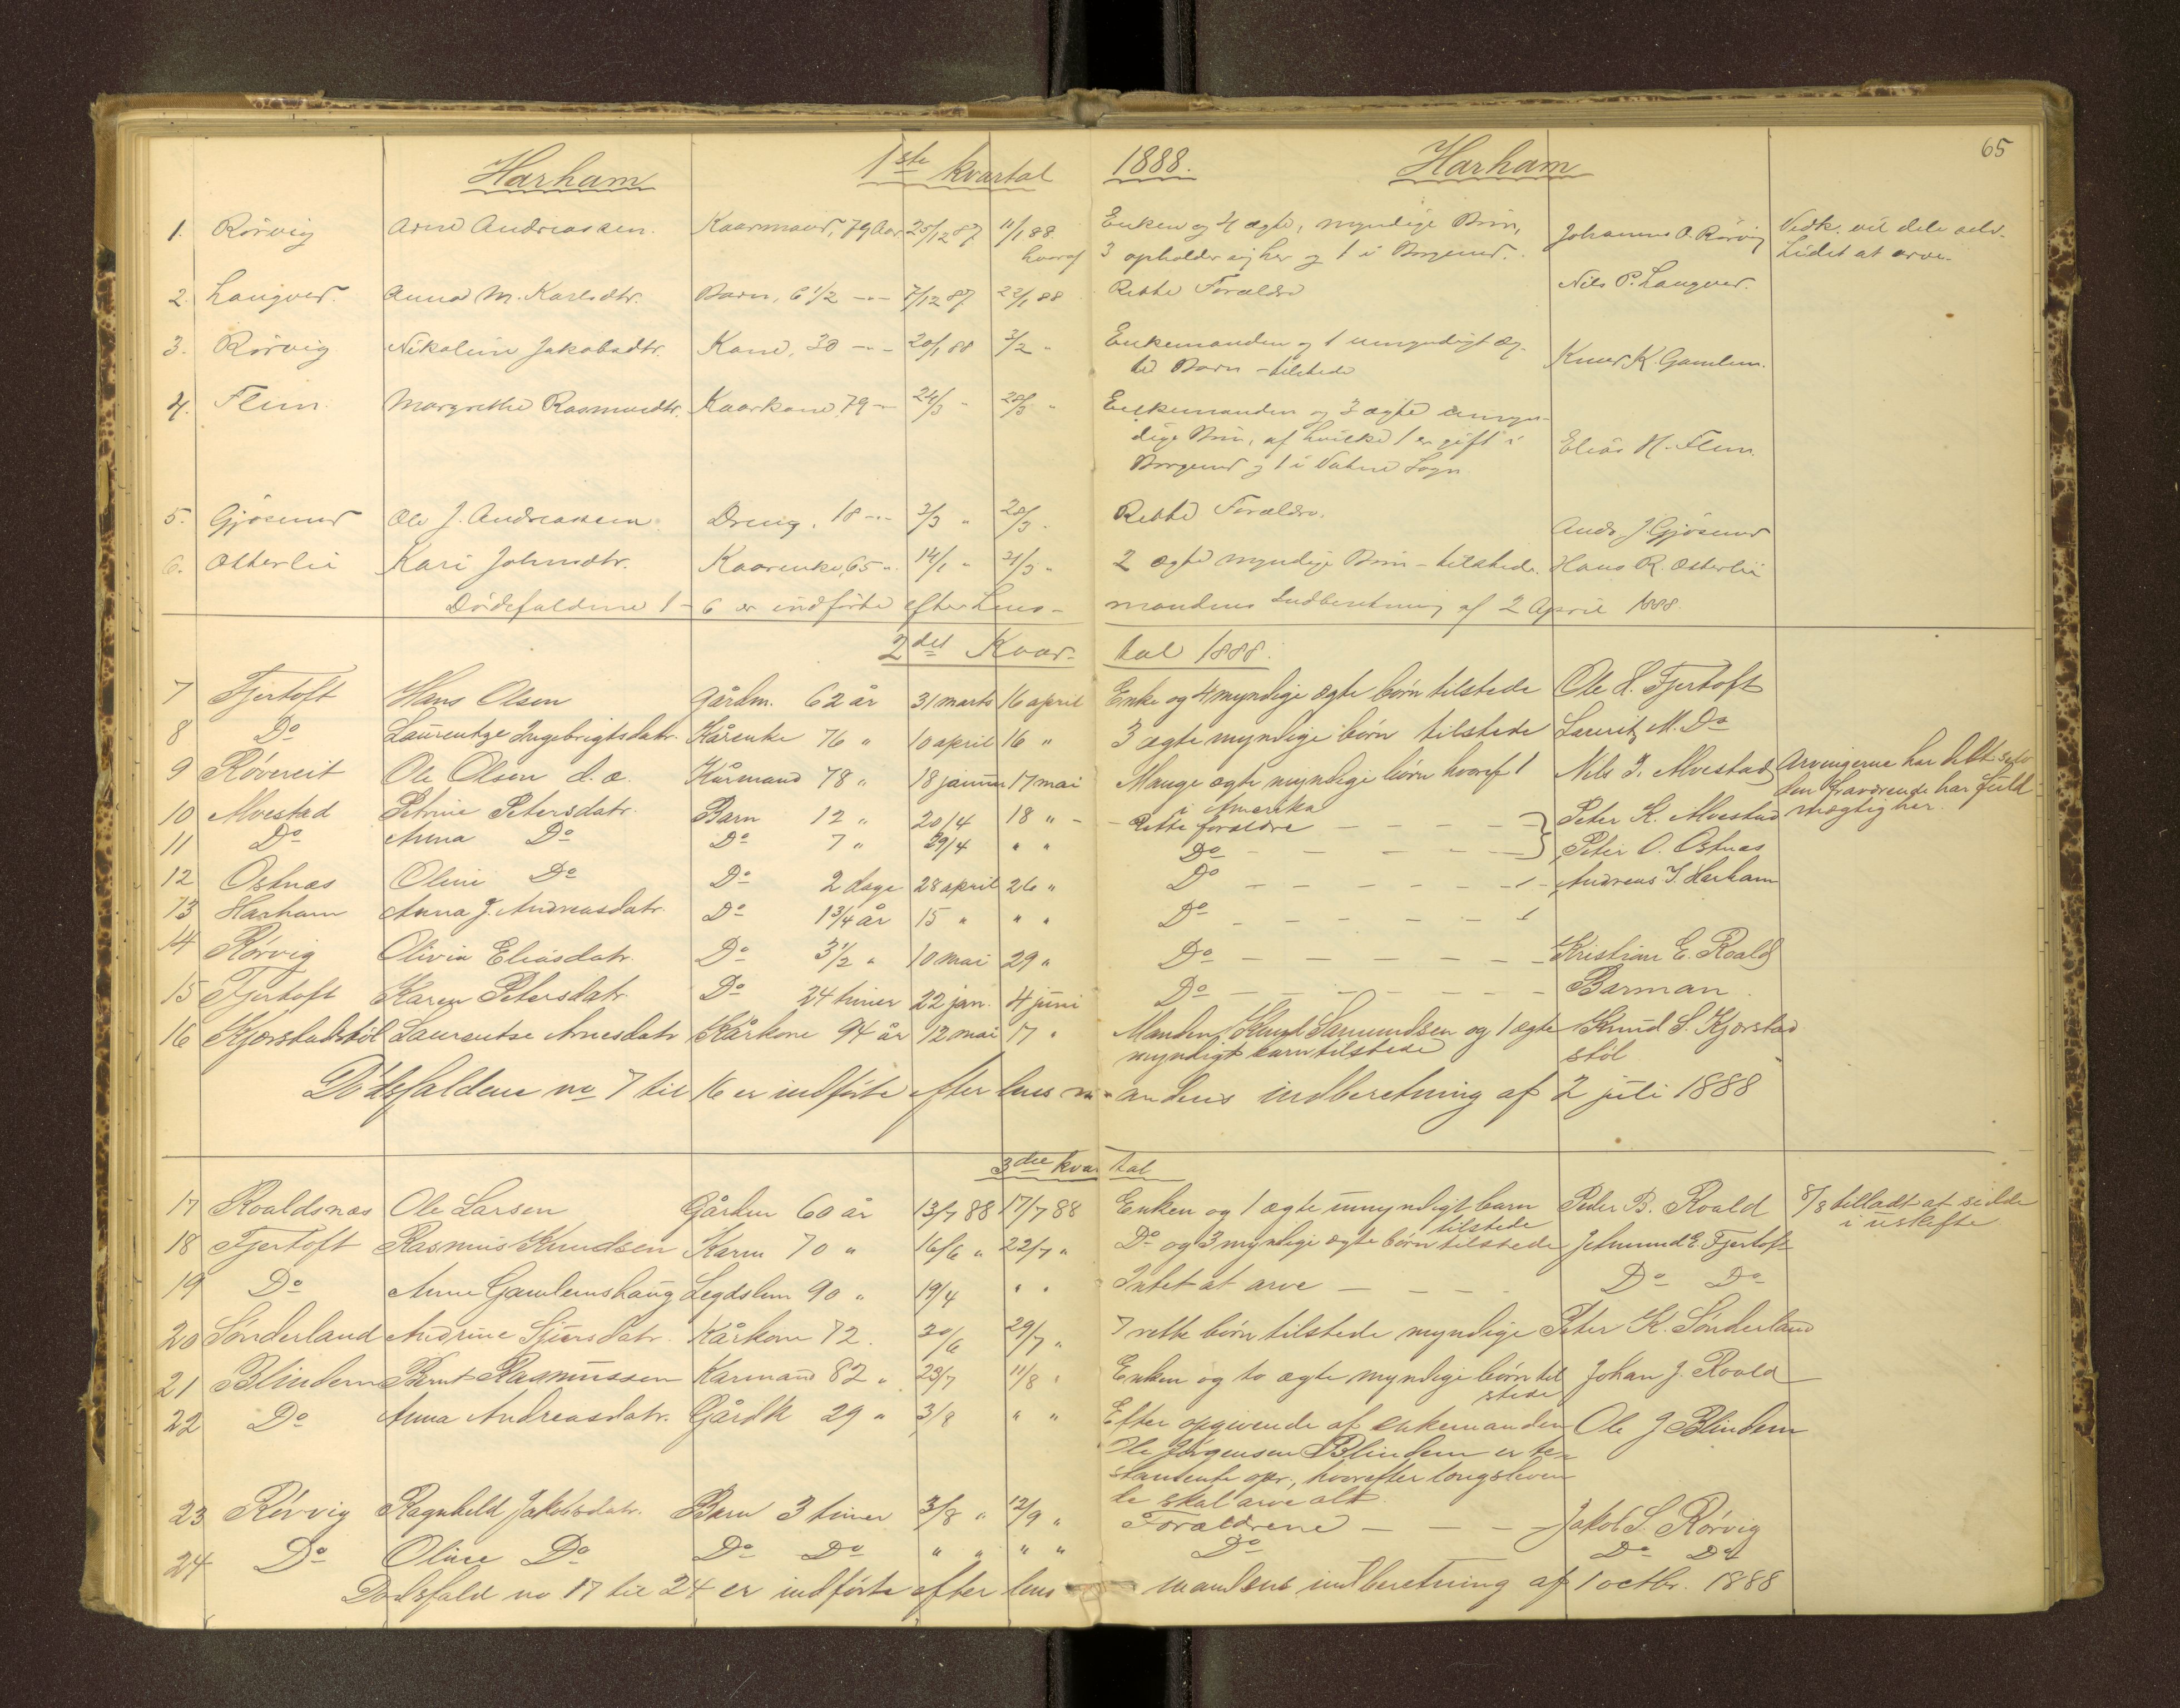 65
Harham 1ste kvartal 1888. Harham
1. Rörvig Arne Andreassen. Kaarmand, 79 Aar 25/12 87 11/1 88. Enken og 4 ægte, myndige Börn, Johannes A. Rörvig Vedk. vil dele selv.
hvoraf 3 opholder sig her og 1 i Borgund. Lidet at arve.
2. Langved. Anna M. Karlsdtr. Barn, 6 1/2 -"- 7/12 87 22/1 88 Rette Forældre Nils P. Langved.
3. Rörvig Nikoline Jakobsdtr. Kone, 30 -"- 20/1 88 3/2 " Enkemanden og 1 umyndigt æg-
te Barn - tilstede Knud K. Gamlem.
4. Flem Margrethe Rasmusdtr. Kaarkone, 79 - 24/3 " 28/3 " Enkemanden og 3 ægte
dige Börn, af hvilke 1 er gift i Elias N. Flem
Borgund og 1 i Vatne Sogn
5. Gjösund Ole J. Andreassen. Dreng, 18 -"- 3/3 " 28/3 " Rette Forældre. Ands. J. Gjösund
6. Österlii Kari Johnsdtr. Kaarenke, 65 " 14/1 " 31/3 " 2 ægte myndige Börn - tilstede. Hans R. Österlii
Dödsfaldene 1-6 er indförte efter Lens- mandens Indberetning af 2 April 1888.
2det Kvar- tal 1888.
7 Fjertoft Hans Olsen Gårdm. 62 år 31 marts 16 april Enke og 4 myndige ægte börn tilstede Ole H. Fjertoft
8 Do Laurentze Ingebrigtsdatr. Kårenke 76 " 10 april 16 " 3 ægte myndige börn tilstede Laurits M. Do
9 Rövereit Ole Olsen d. æ. Kårmand 78 " 18 januar 17 mai Mange ægte myndige börn hvoraf 1 Nils J. Alvestad Arvingerne har delt selv
i Amerika den fraværende har fuld-
10 Alvestad Petrine Petersdatr. Barn 12 " 20/4 18 " - Rette forældre - - - - Peter K. Alvestad mægtig her.
11 Do Anna Do Do 7 " 29/4 " " Do - - - - Peter O. Östnæs
12 Östnæs Oline Do Do 2 dage 28 april 26 " Do - - - - Andreas I. Harham
13 Harham Anna J. Andreasdatr. Do 1 3/4 år 15 " " " Do - - - -
14 Rörvig Olivia Eliasdatr. Do 3 1/2 " 10 mai 29 " Do - - - - Kristian E. Roald
15 Fjertoft Karen Petersdatr. Do 24 timer 22 jan. 4 juni Do - - - - Barman
16 Kjærstadstöl Laurentse Arnesdatr Kårkone 94 år 12 mai 17 " Manden Knud Samundsen og 1 ægte Knud S. Kjærstad
myndigt barn tilstede stöl
Dödsfaldene no 7 til 16 er indförte efter lensm- andens indberetning af 2 juli 1888
3die kvar tal
17 Roaldsnæs Ole Larsen Gårdm 60 år 13/7 88 17/7 88 Enken og 1 ægte umyndigt barn Peder B. Roald 8/8 tilladt at sidde
tilstede i uskifte
18 Fjertoft Rasmus Knudsen Karm 70 " 16/6 " 22/7 " Do og 3 myndige ægte börn tilstede Jetmund E. Fjertoft
19 Do Anne Gamlemshaug Legdslem 90 " 19/4 " " Intet at arve - - - - Do Do
20 Sönderland Andrine Sjursdatr. Kårkone 72. 20/6 29/7 " 7 rette börn tilstede myndige Peter K. Sönderland
21 Blindem Bernt Rasmussen Karmand 82 " 23/7 11/8 " Enken og to ægte myndige börn til Johan J. Roald
stede
22 Do Anna Andreasdatr. Gårdk 29 " 3/8 " " Efter opgivende af enkemanden Ole J Blindem
Ole Jörgensen Blindem er te-
stamente opr., hvorefter længstleven
de skal arve alt.
23 Rörvig Ragnhild Jakobsdatr. Barn 3 timer 3/8 " 12/9 " Forældrene - - - Jakob S. Rörvig
24 Do Oline Do Do Do " " " " Do Do Do
Dödsfald no 17 til 24 er indförte efter lens mandens indberetning af 1 octbr. 1888